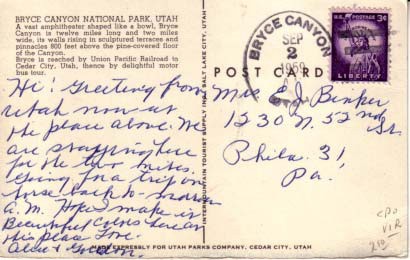 BRYCE CANYON NATIONAL PARK, UTAH
A vast amphitheater shaped like a bowl, Bryce
Canyon is twelve miles long and two miles
wide, its walls rising in sculptured terraces and
pinnacles 800 feet above the pine-covered floor
of the Canyon.
Bryce is reached by Union Pacific Railroad to
Cedar City, Utah, thence by delightful motor
bus tour.
Hi! Greeting from
Utah now at
the place above. We
are stopping here
for the two nites.
Going for a trip on
horse back to-morrow
A.M. Hope I make it
Beautiful Colors here at
this place Love
Alice & Gordon.
MADE EXPRESSLY FOR UTAH PARKS COMPANY, CEDAR CITY, UTAH
INTERMOUNTAIN TOURIST SUPPLY INC. SALT LAKE CITY, UTAH
POST CARD
BRYCE CANYON
SEP
2
1959
U.S. POSTAGE
3¢
LIBERTY
Mrs E. J. Binker
1230 N. 52nd St.
Phila. 31,
Pa.
CPO
VIR